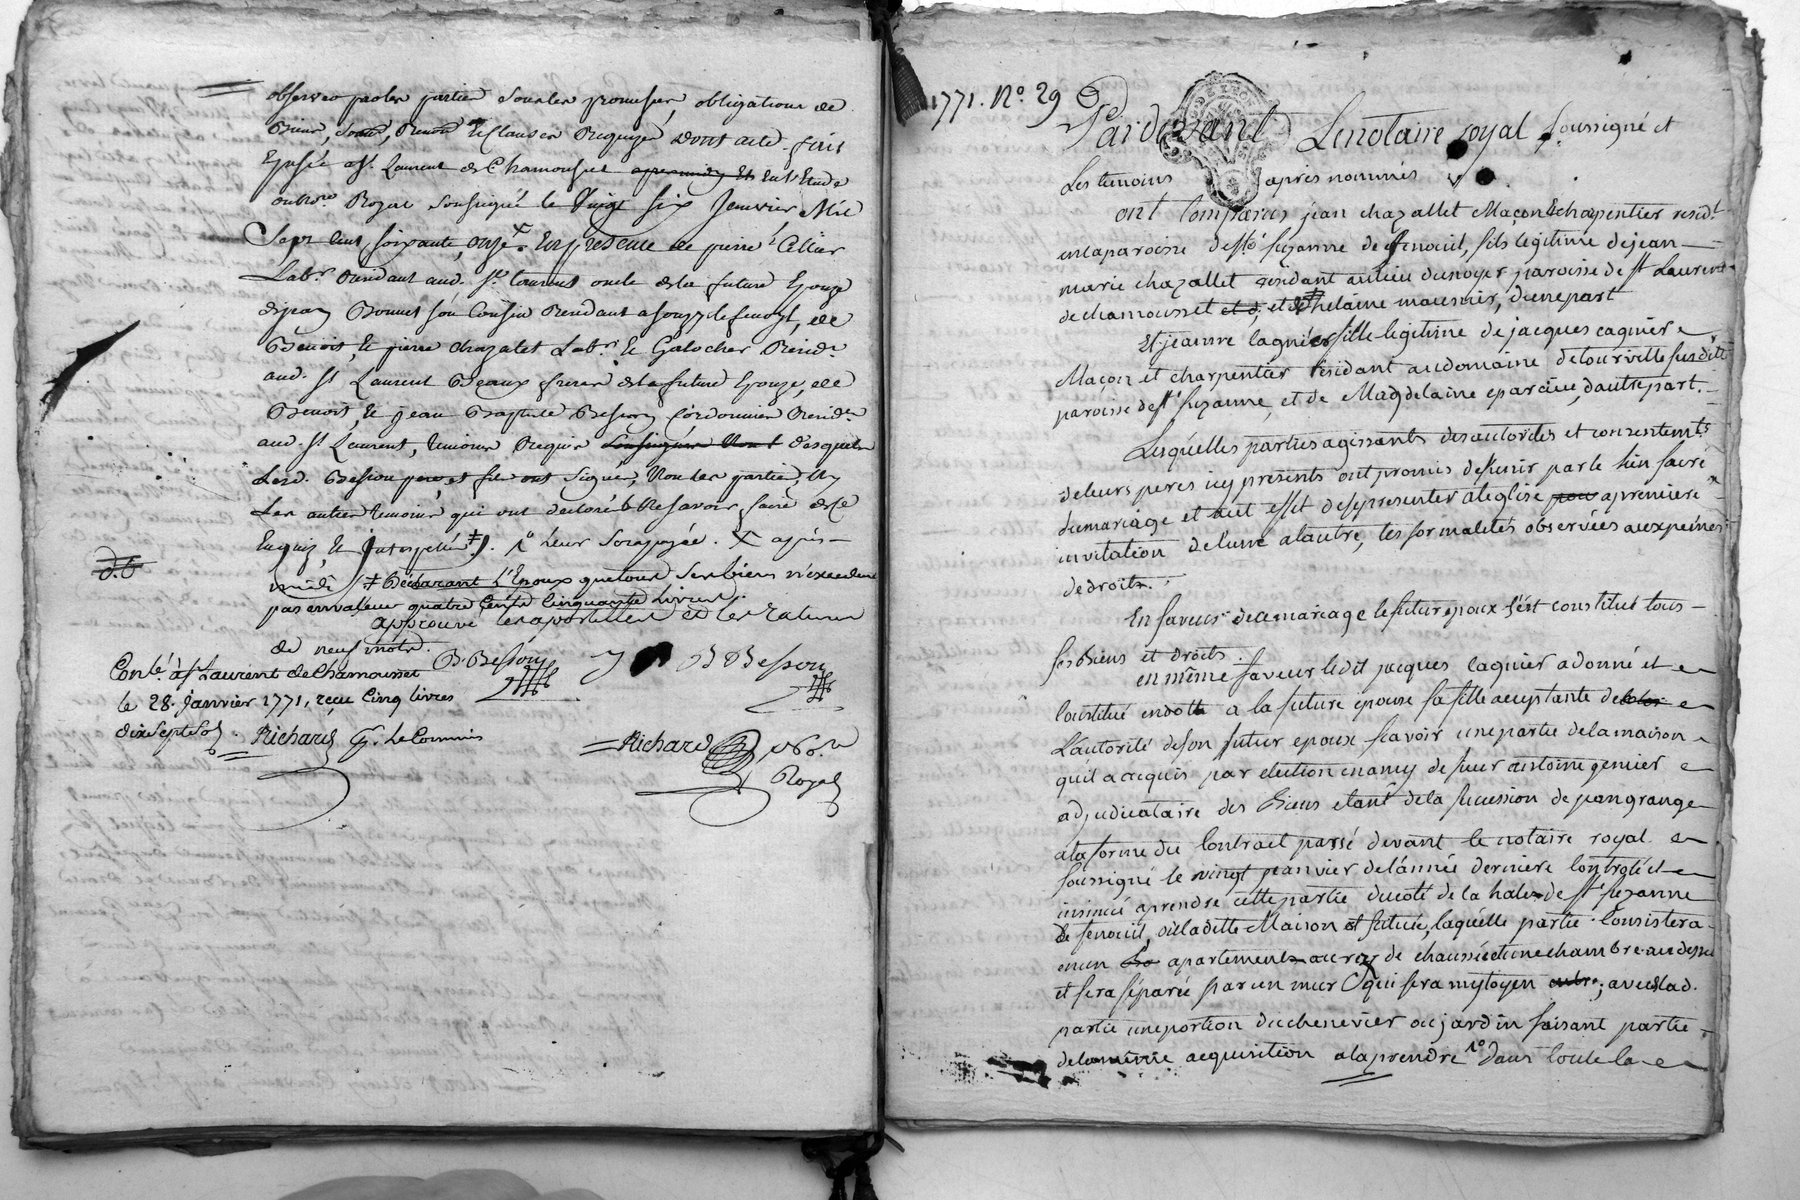 observer par les parties sous les promesses, obligations de
Biens, soum, Renon et Clauses Requizes dont acte. fait
et passé à St. Laurent de Chamousset apresmidy et en l'Etude
du nore Royal soussigné le Vingt six Janvier Mil
Sept cent soixante onze. X En presence de pierre Cellier
Labr. Residant aud. St. Laurent oncle de la future Epouze
de jean Bonnet son Cousin Residant a Souzy
Benoit, et pierre chazalet Labr. et Galocher Resid.
aud. St Laurent Beaux freres de la future Epouze, de
Benoit, et jean Baptiste Besson Cordonnier Resid.
aud. St Laurent, temoins Requis
Led. Besson pere, et fils ont Signés, Non les parties, ny
Les autres temoins qui ont declaré ne Scavoir faire de ce
Enquis et Interpellés ‡ X après-
midi ‡ Déclarant L'Epoux que tous ses biens n'excedent
pas en valeur quatre Cents Cinquante Livres.
approuvé les apostilles et les ratures
de neuf mots.
B. Besson J B Besson
Conlé. à St Laurent de Chamousset
le 28. janvier 1771, reçu Cinq livres
dix sept sols. Richard Le Commis
Richard Nore
Royal
1771. No. 29
Pardevant Le notaire royal soussigné et
Les temoins après nommés
ont Comparus jean chazallet Maçon & charpentier resid.t
en la paroisse de Ste. suzanne de fenoüil, fils legitime de jean
marie chazallet residant au lieu du noyer, paroisse de St. Laurent
de chamousset et d, et d'helaine mausnier, d'une part
Et jeanne Cagnier fille legitime de jacques cagnier
Maçon et charpentier residant au domaine de tourville susditte
paroisse de Ste suzanne, et de Magdelaine eparcieu, d'autre part.
Lesquelles parties agissants des autorités et consentemts
de leurs peres icy présents ont promis de s'unir par le lien sacré
du mariage et a cet effet de se presenter a l'eglise pou a premiere
invitation de l'une a l'autre, les formalités observées aux peines
de droit.
En faveur de ce mariage le futur epoux s'est constitué tous
ses Biens et droits.
en même faveur ledit jacques Cagnier a donné et
Constitué en dotte a la future epouse sa fille acceptante de
L'autorité de son futur epoux sçavoir une partie de la maison
qu'il a acquis par election en amy de sieur antoine genier
adjudicataire des Biens etant de la succession de jean grange
a la forme du Contract passé devant le notaire royal
soussigné le vingt jeanvier de l'année derniere Controlé et
insinué a prendre cette partie du coté de la hale de Ste suzanne
de fenoüil, ou la ditte Maison est située, laquelle partie Consistera
en un apartement au rez de chaussée et une chambre au dessus
et sera séparée par un mur qui sera mytoyen ; avec lad.
partie une portion du chenevier ou jardin faisant partie
de la même acquisition a la prendre 1o dans toute la